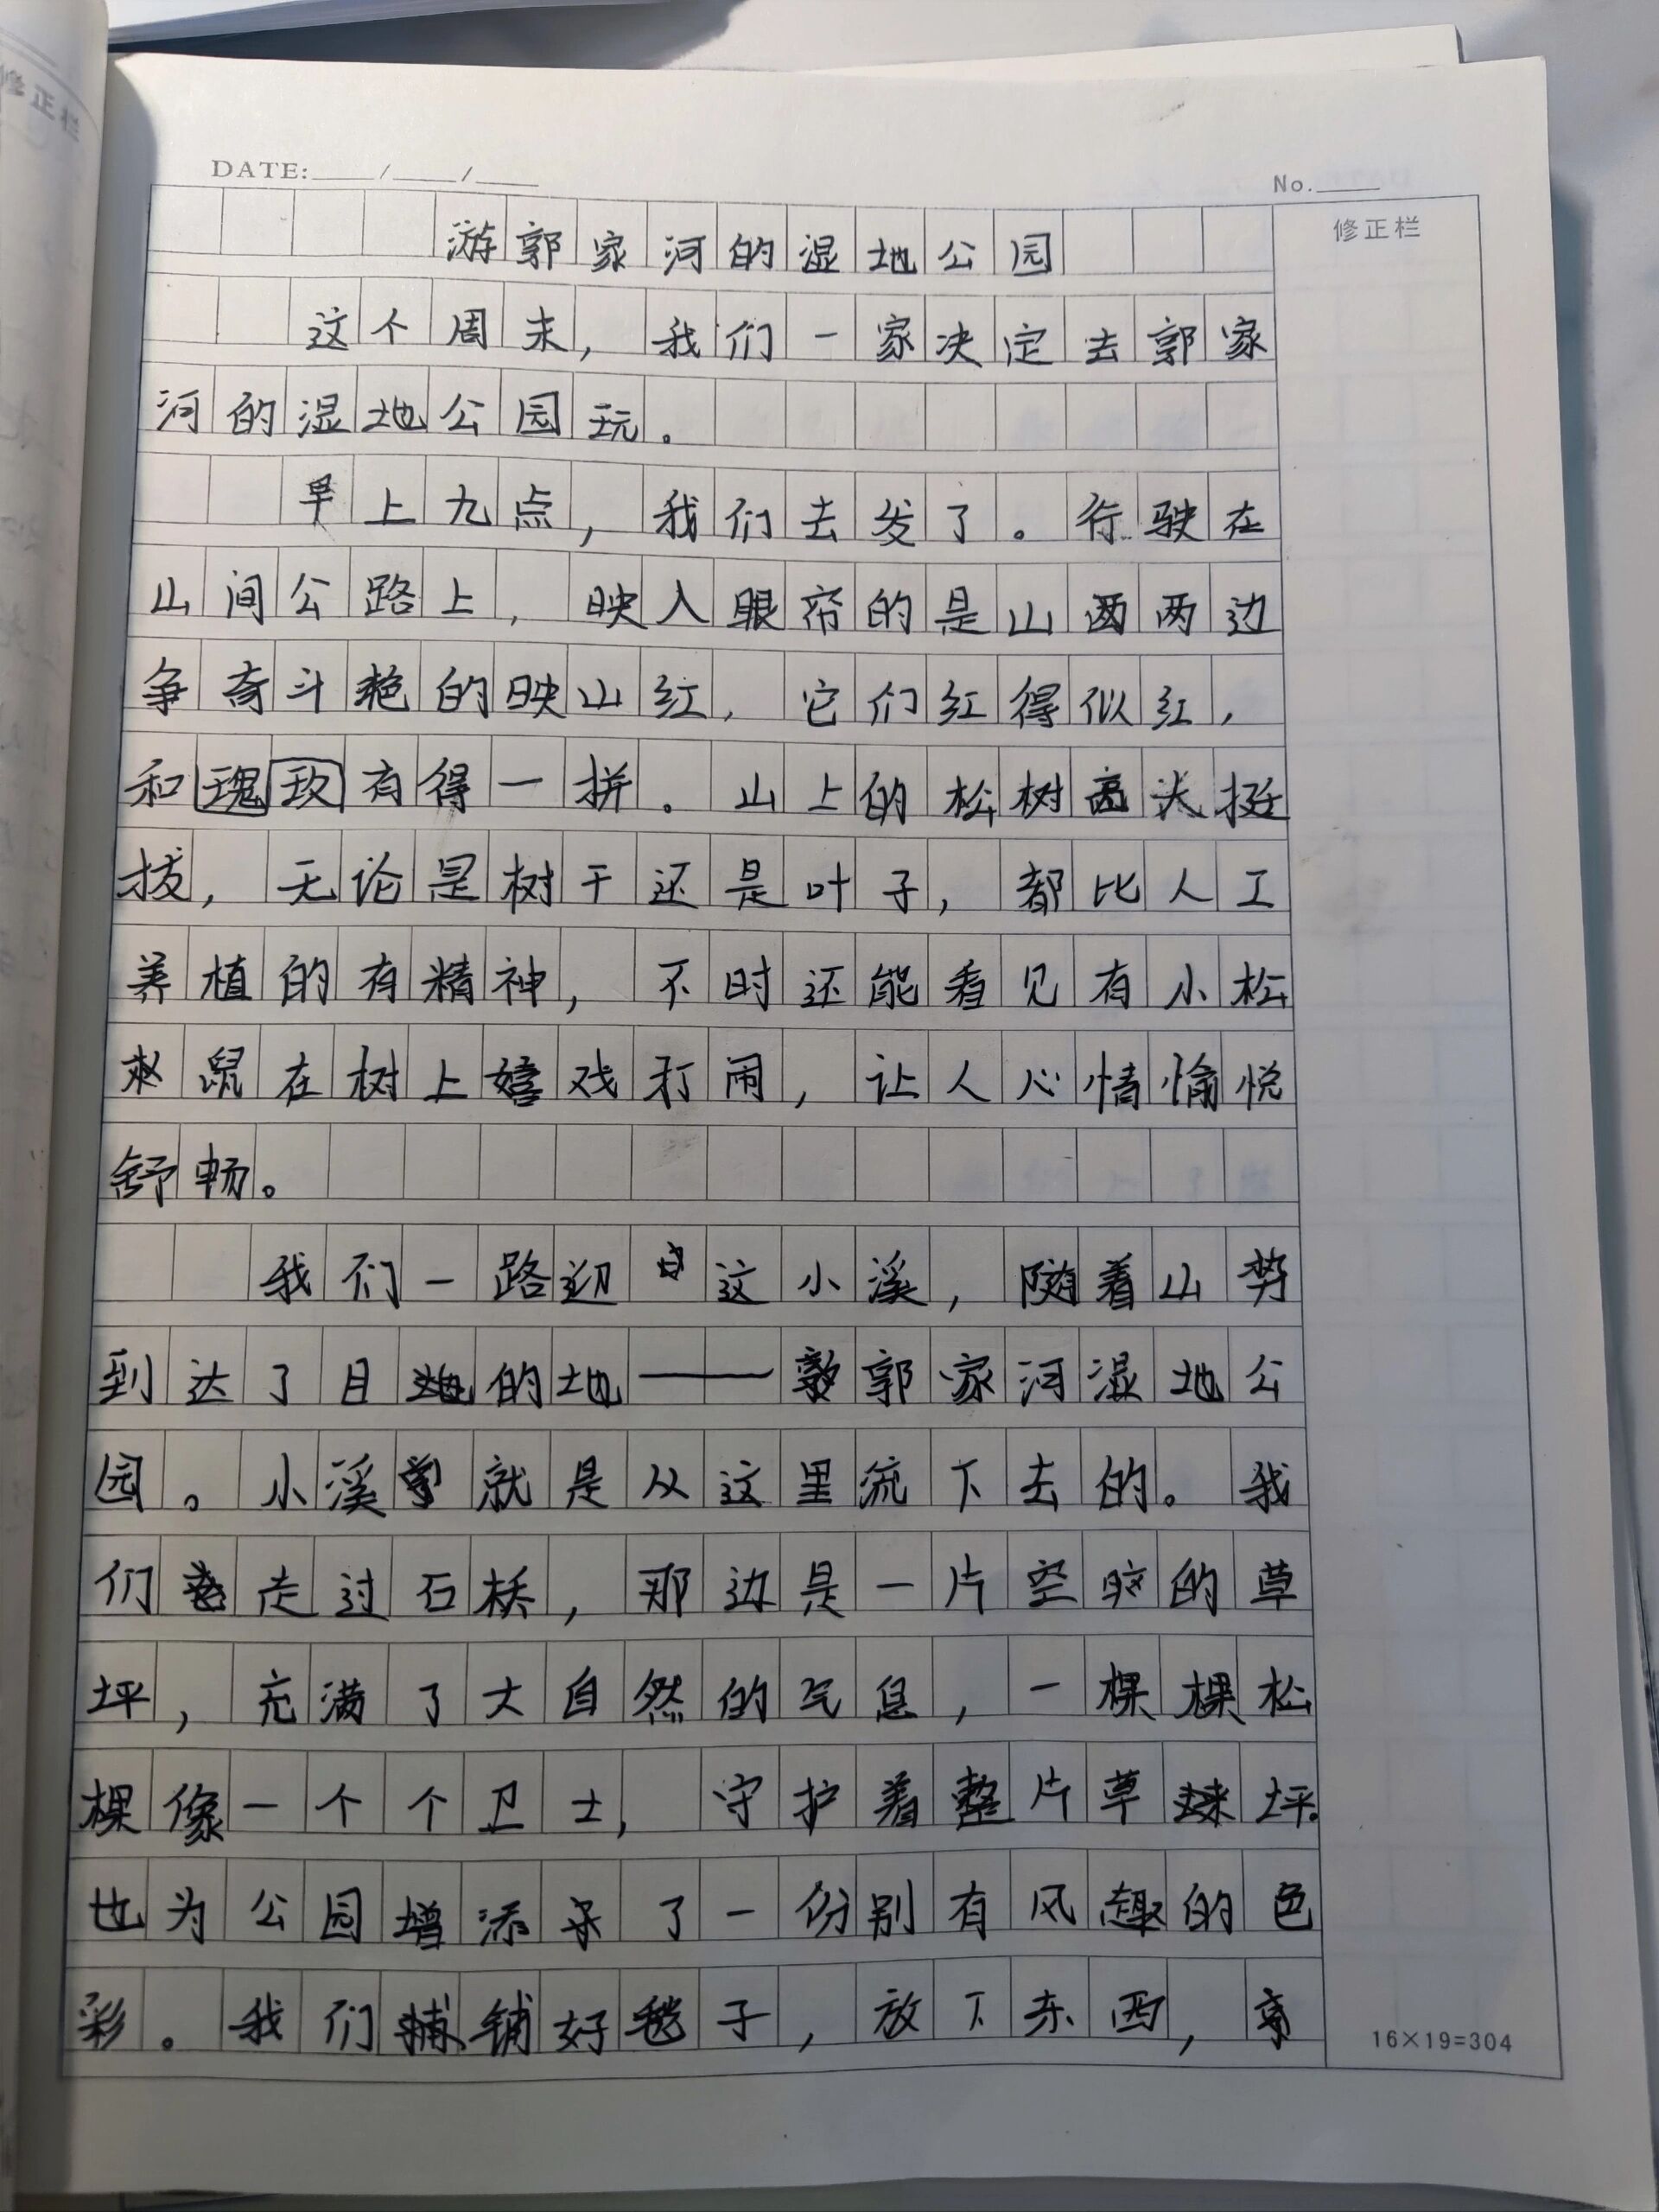 修正栏
DATE:____/____/____
No.____
修正栏
游郭家河的湿地公园
这个周末，我们一家决定去郭家
河的湿地公园玩。
早上九点，我们去发了。行驶在
山间公路上，映入眼帘的是山两两边
争奇斗艳的映山红，它们红得似红，
和瑰玫有得一拼。山上的松树高大挺
拔，无论是树干还是叶子，都比人工
养植的有精神，不时还能看见有小松
鼠在树上嬉戏打闹，让人心情愉悦
舒畅。
我们一路迎这小溪，随着山势
到达了目的地——郭家河湿地公
园。小溪就是从这里流下去的。我
们走过石桥，那边是一片空的草
坪，充满了大自然的气息，一棵棵松
棵像一个个卫士，守护着整片草坪。
也为公园增添了一份别有风趣的色
彩。我们铺好毯子，放下东西，
16×19=304